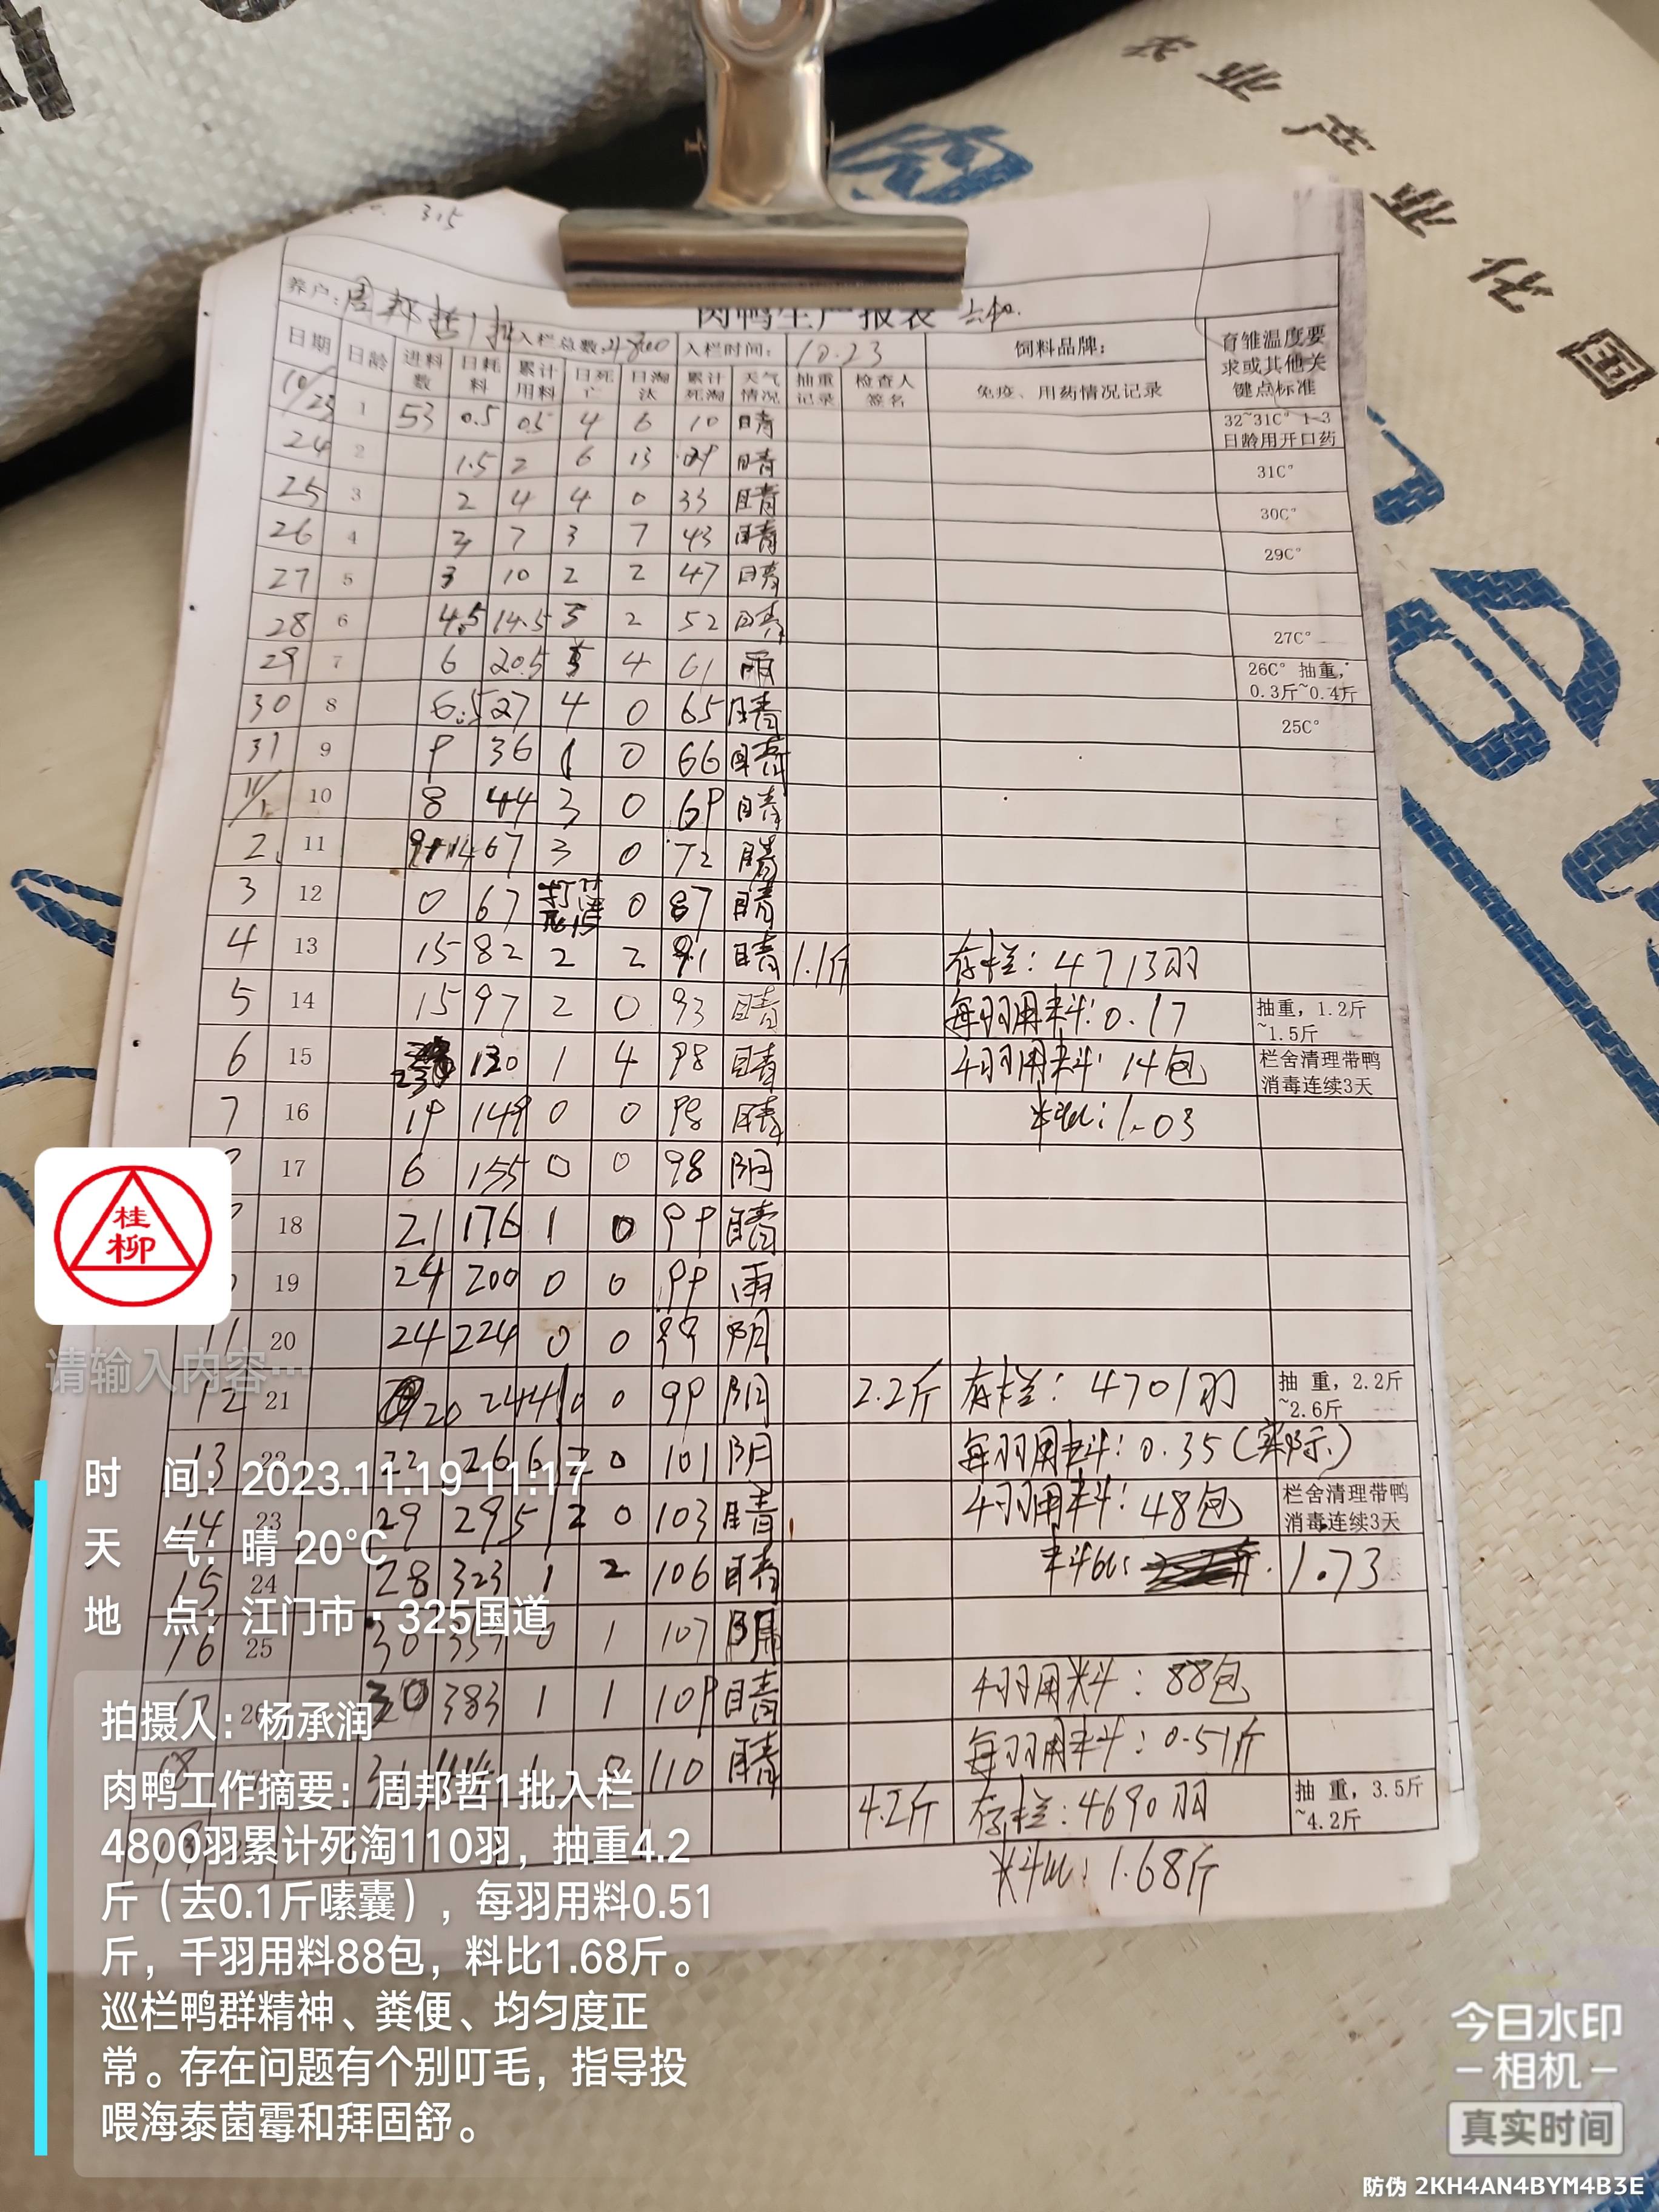 315
肉
资产业农
浙
国
养户：周邦哲1批
肉鸭生产报表 六和
入栏总数：4800 入栏时间：10.23 饲料品牌： 育雏温度要求或其他关键点标准
日期 日龄 进料数 日耗料 累计用料 日死亡 日淘汰 累计死淘 天气情况 抽重记录 检查人签名 免疫、用药情况记录
10/23 1 53 0.5 0.5 4 6 10 晴 32~31C° 1-3日龄用开口药
24 2 1.5 2 6 13 29 晴 31C°
25 3 2 4 4 0 33 晴 30C°
26 4 3 7 3 7 43 晴 29C°
27 5 3 10 2 2 47 晴
28 6 4.5 14.5 3 2 52 晴 27C°
29 7 6 20.5 5 4 61 雨 26C° 抽重，0.3斤~0.4斤
30 8 6.5 27 4 0 65 晴 25C°
31 9 9 36 1 0 66 晴
11/1 10 8 44 3 0 69 晴
2 11 67 3 0 72 晴
3 12 0 67 死15 0 87 晴
4 13 15 82 2 2 91 晴 1.1斤 存栏：4713羽
5 14 15 97 2 0 93 晴 每羽用料：0.17 抽重，1.2斤~1.5斤
6 15 23 130 1 4 98 晴 千羽用料 14包 栏舍清理带鸭消毒连续3天
7 16 19 149 0 0 98 晴 料比：1.03
17 6 155 0 0 98 阴
18 21 176 1 0 99 晴
19 24 200 0 0 99 雨
11 20 24 224 0 0 99 阴
12 21 20 244 0 0 99 阴 2.2斤 存栏：4701羽 抽 重，2.2斤~2.6斤
13 22 22 266 2 0 101 阴 每羽用料：0.35（实际）
14 23 29 295 2 0 103 晴 千羽用料：48包 栏舍清理带鸭消毒连续3天
15 24 28 323 1 2 106 晴 料比： 1.73
16 25 30 353 0 1 107 阴
17 26 30 383 1 1 109 晴 千羽用料：88包
18 31 414 1 0 110 晴 每羽用料：0.51斤
4.2斤 存栏：4690羽 抽 重，3.5斤~4.2斤
料比：1.68斤
桂柳
请输入内容…
时 间：2023.11.19 11:17
天 气：晴 20°C
地 点：江门市·325国道
拍摄人：杨承润
肉鸭工作摘要：周邦哲1批入栏
4800羽累计死淘110羽，抽重4.2
斤（去0.1斤嗉囊），每羽用料0.51
斤，千羽用料88包，料比1.68斤。
巡栏鸭群精神、粪便、均匀度正
常。存在问题有个别叮毛，指导投
喂海泰菌霉和拜固舒。
今日水印
相机
真实时间
防伪 2KH4AN4BYM4B3E